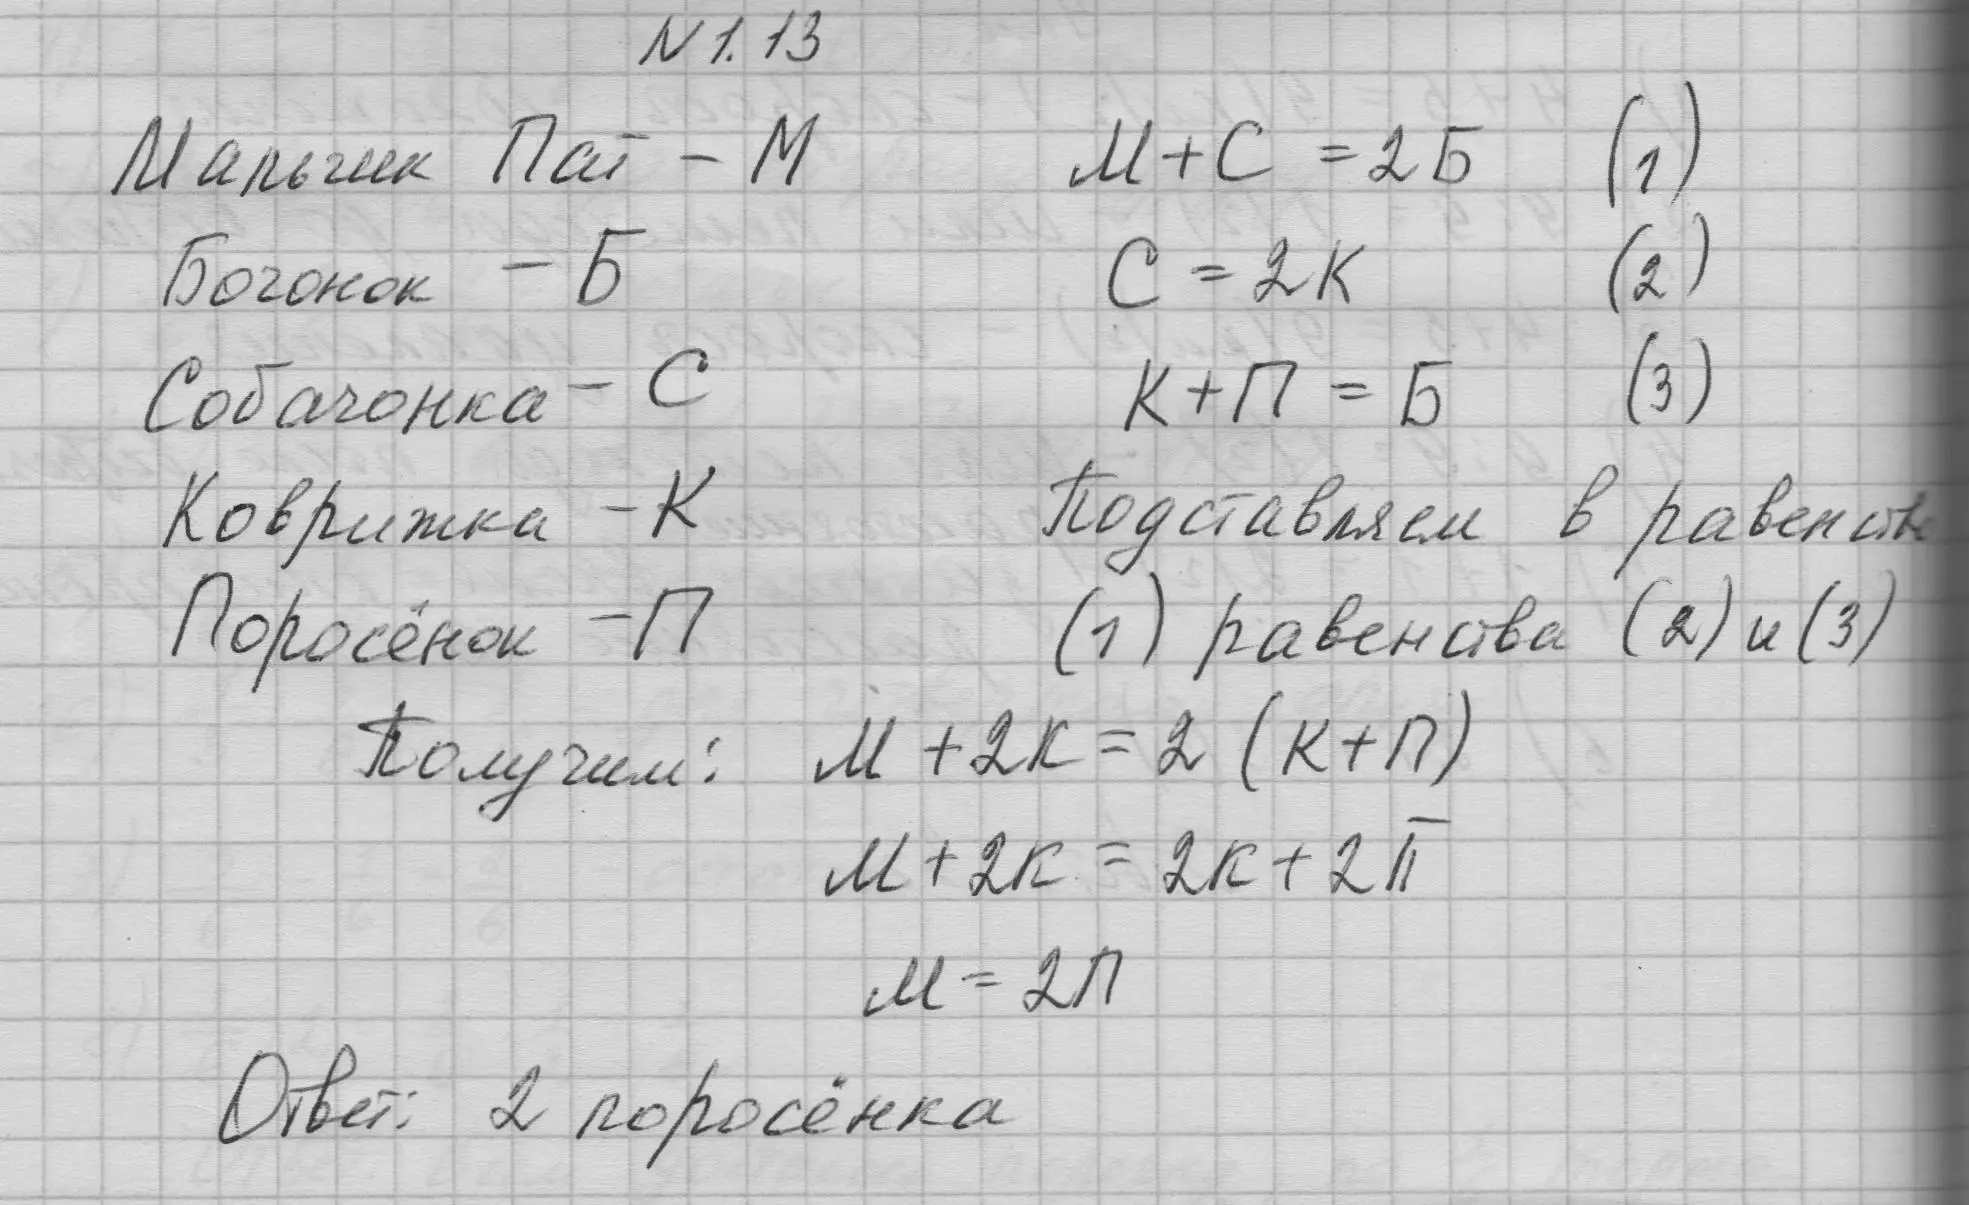 N 1.13
Мальчик Пат – М
М + С = 2Б (1)
Бочонок – Б
С = 2К (2)
Собачонка – С
К + П = Б (3)
Коврижка – К
Подставляем в равенств
Поросёнок – П
(1) равенства (2) и (3)
Получим: М + 2К = 2 (К + П)
М + 2К = 2К + 2П
М = 2П
Ответ: 2 поросёнка